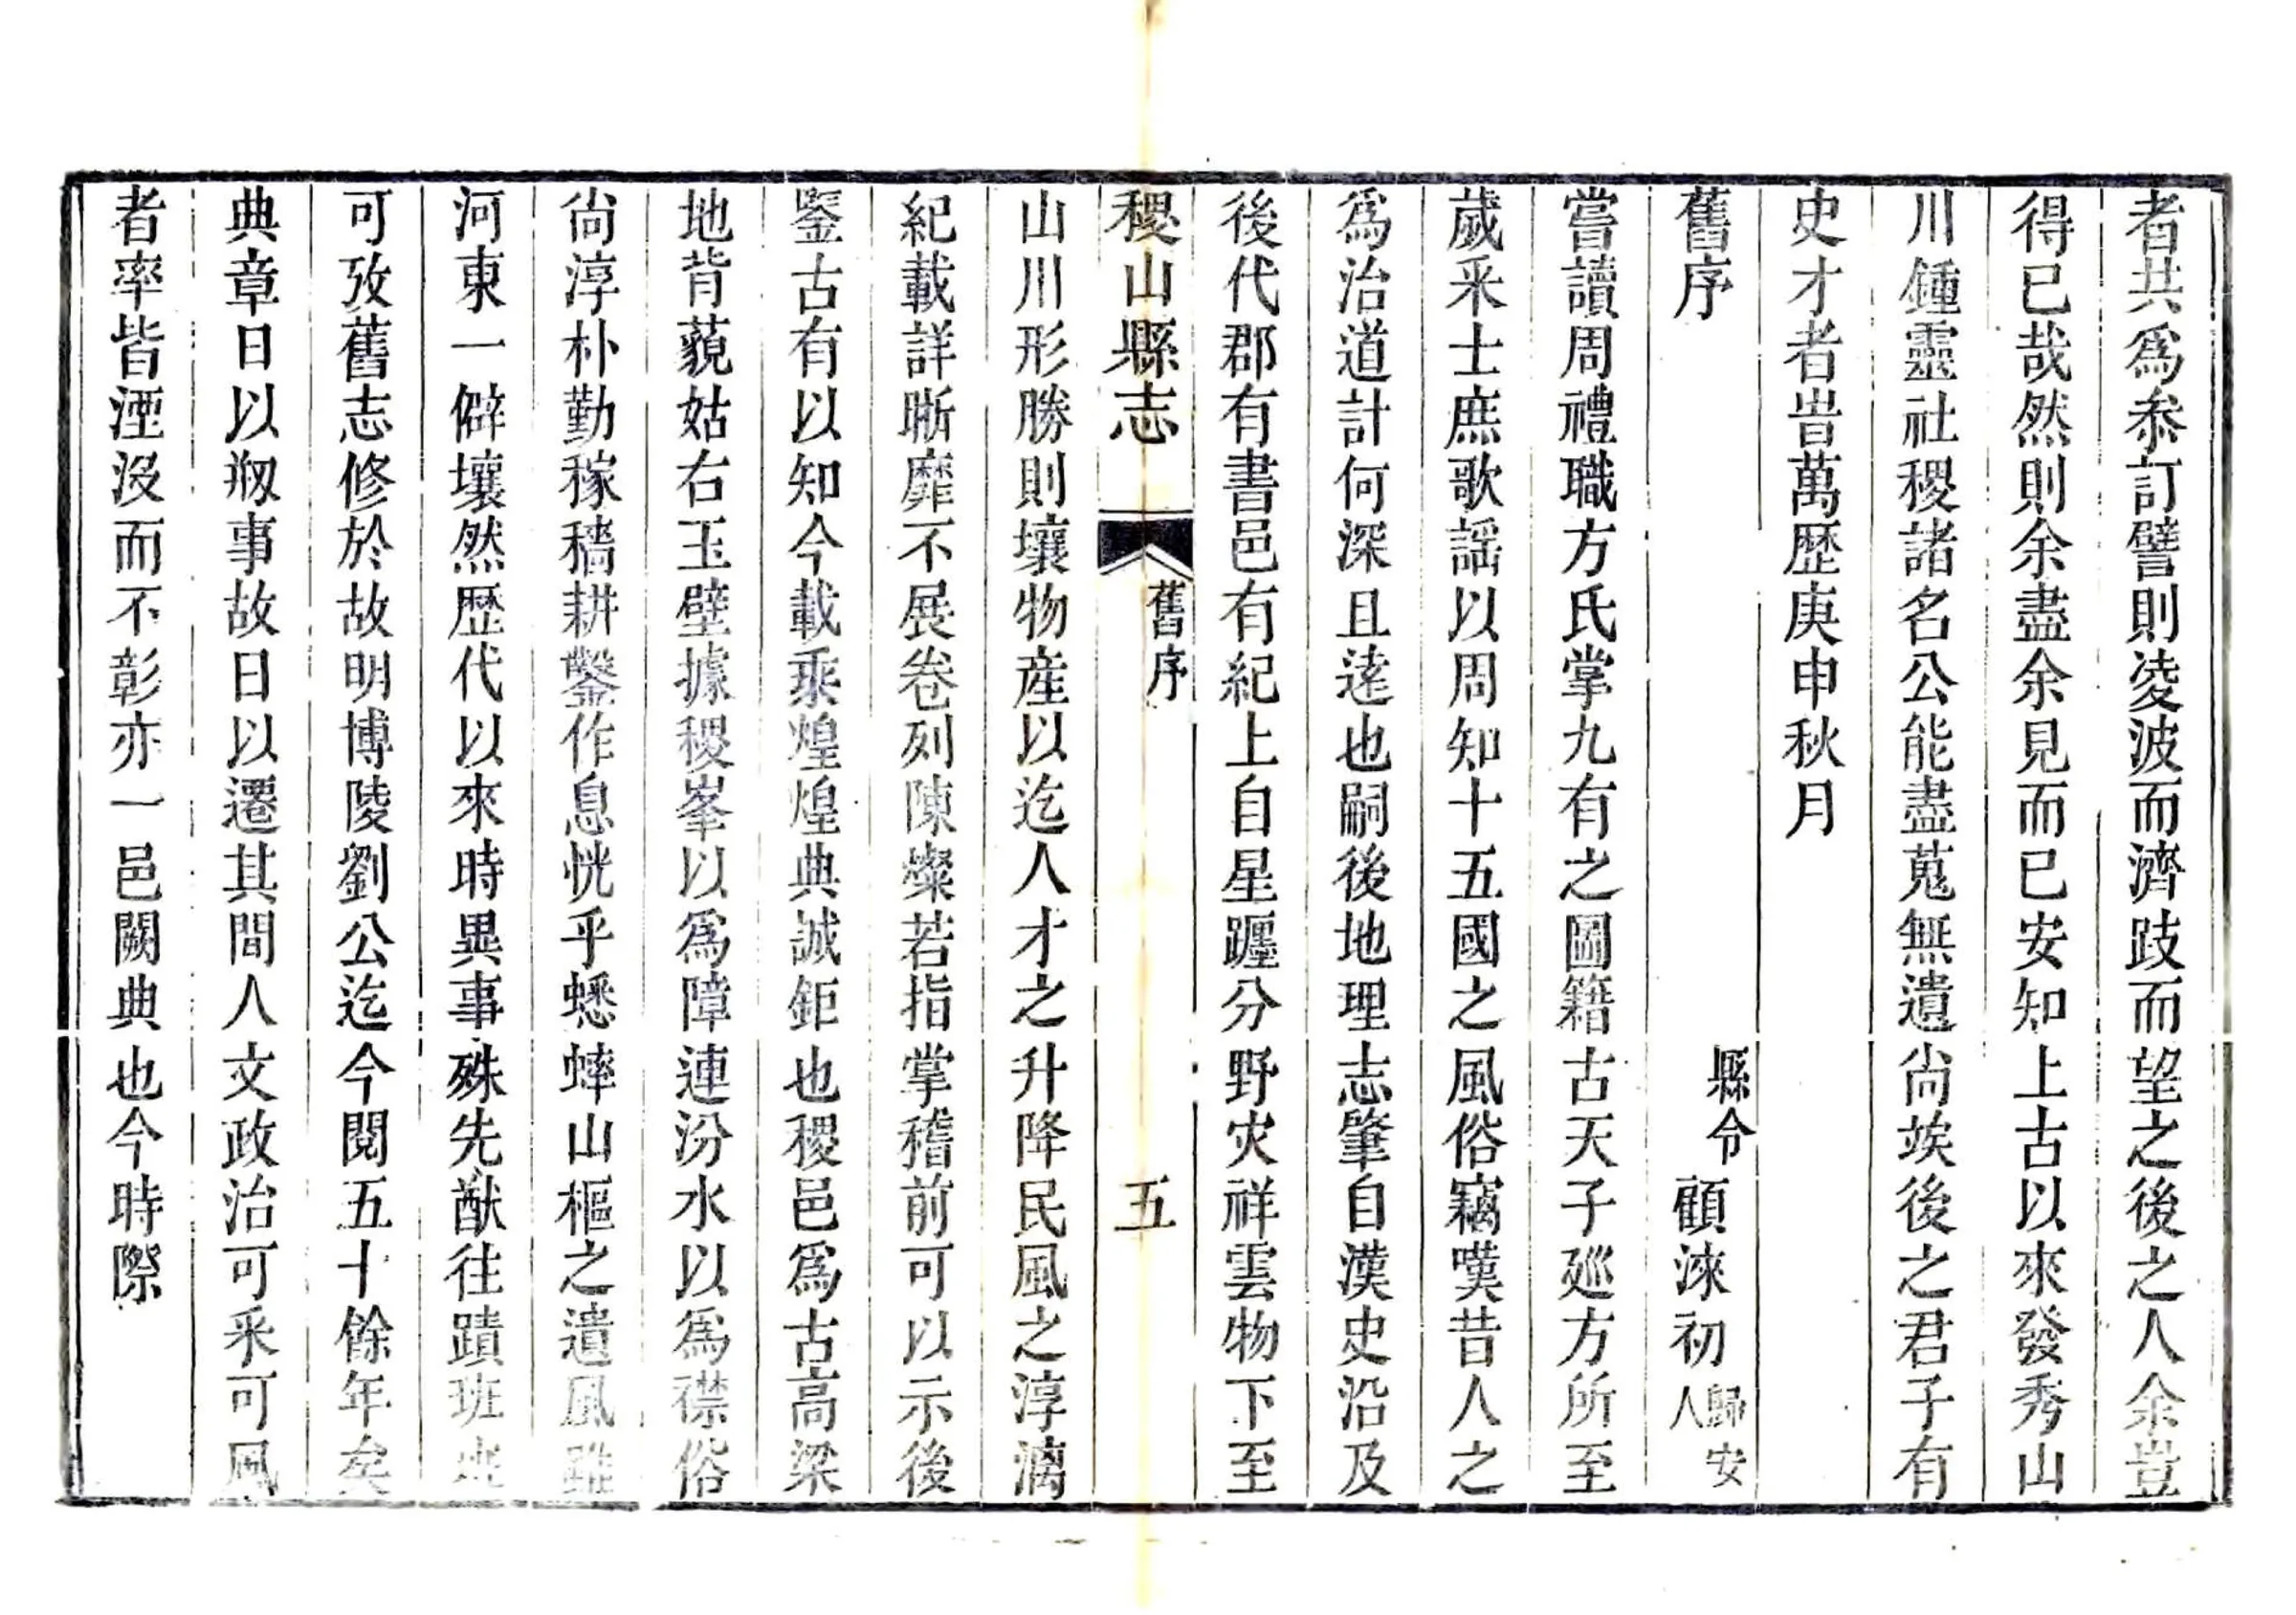 者共爲叅訂譬則凌波而濟跂而望之後之人余豈
得已哉然則余盡余見而已安知上古以來發秀山
川鍾靈社稷諸名公能盡蒐無遺尙竢後之君子有
史才者旹萬歷庚申秋月
舊序
縣令顧涞初歸安人
嘗讀周禮職方氏掌九有之圖籍古天子廵方所至
歲采士庶歌謡以周知十五國之風俗竊嘆昔人之
爲治道計何深且逺也嗣後地理志肇自漢史沿及
後代郡有書邑有紀上自星躔分野灾祥雲物下至
稷山縣志 舊序 五
山川形勝則壤物産以迄人才之升降民風之淳漓
紀載詳晰靡不展卷列陳燦若指掌稽前可以示後
鑒古有以知今載乘煌煌典誠鉅也稷邑爲古高梁
地背藐姑右玉壁據稷峯以爲障連汾水以爲襟俗
尙淳朴勤稼穡耕鑿作息恍乎蟋蟀山樞之遺風雖
河東一僻壤然歷代以來時異事殊先猷往蹟班班
可攷舊志修於故明博陵劉公迄今閱五十餘年矣
典章日以剏事故日以遷其間人文政治可采可風
者率皆湮沒而不彰亦一邑闕典也今時際